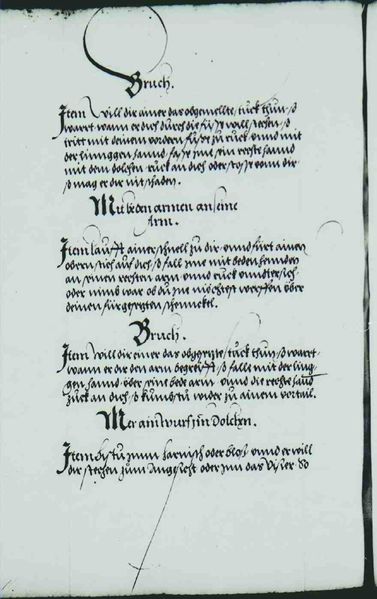 Bruch.
Item Will dir ainer das obgemellte stuck thun so
wart wann er dich durch die füess will stechen so
tritt mit deinem vordern fuess zu ruck vnnd mit
der linggen hannd fass jme sein rechte hannd
mit dem dolchen ruck an dich oder stoss vonn dir
so mag er dir nit schaden.
Mit beden armen an seine
Arm.
Item laufft ainer schnell zu dir vnnd fürt ainen
obern stich auf dich so fall jme mit beden henden
an seinen rechten arm vnnd ruck vndter sich
oder nimb war ob du jne möchest werffen vber
deinen fürgesetzten schennckel.
Bruch.
Item Will dir einer das obgeseite stuck thun so wart
wann er dir den arm begreifft so fall mit der ling
gen hannd vber seine bede arm vnnd die rechte hand
zuck an dich so kumbstu wider zu ainem vortail.
Mer ain wurf jm Dolchen.
Item bistu jnn harnisch oder bloss vnnd er will
dir stechen zum Angesicht oder jnn das visier So